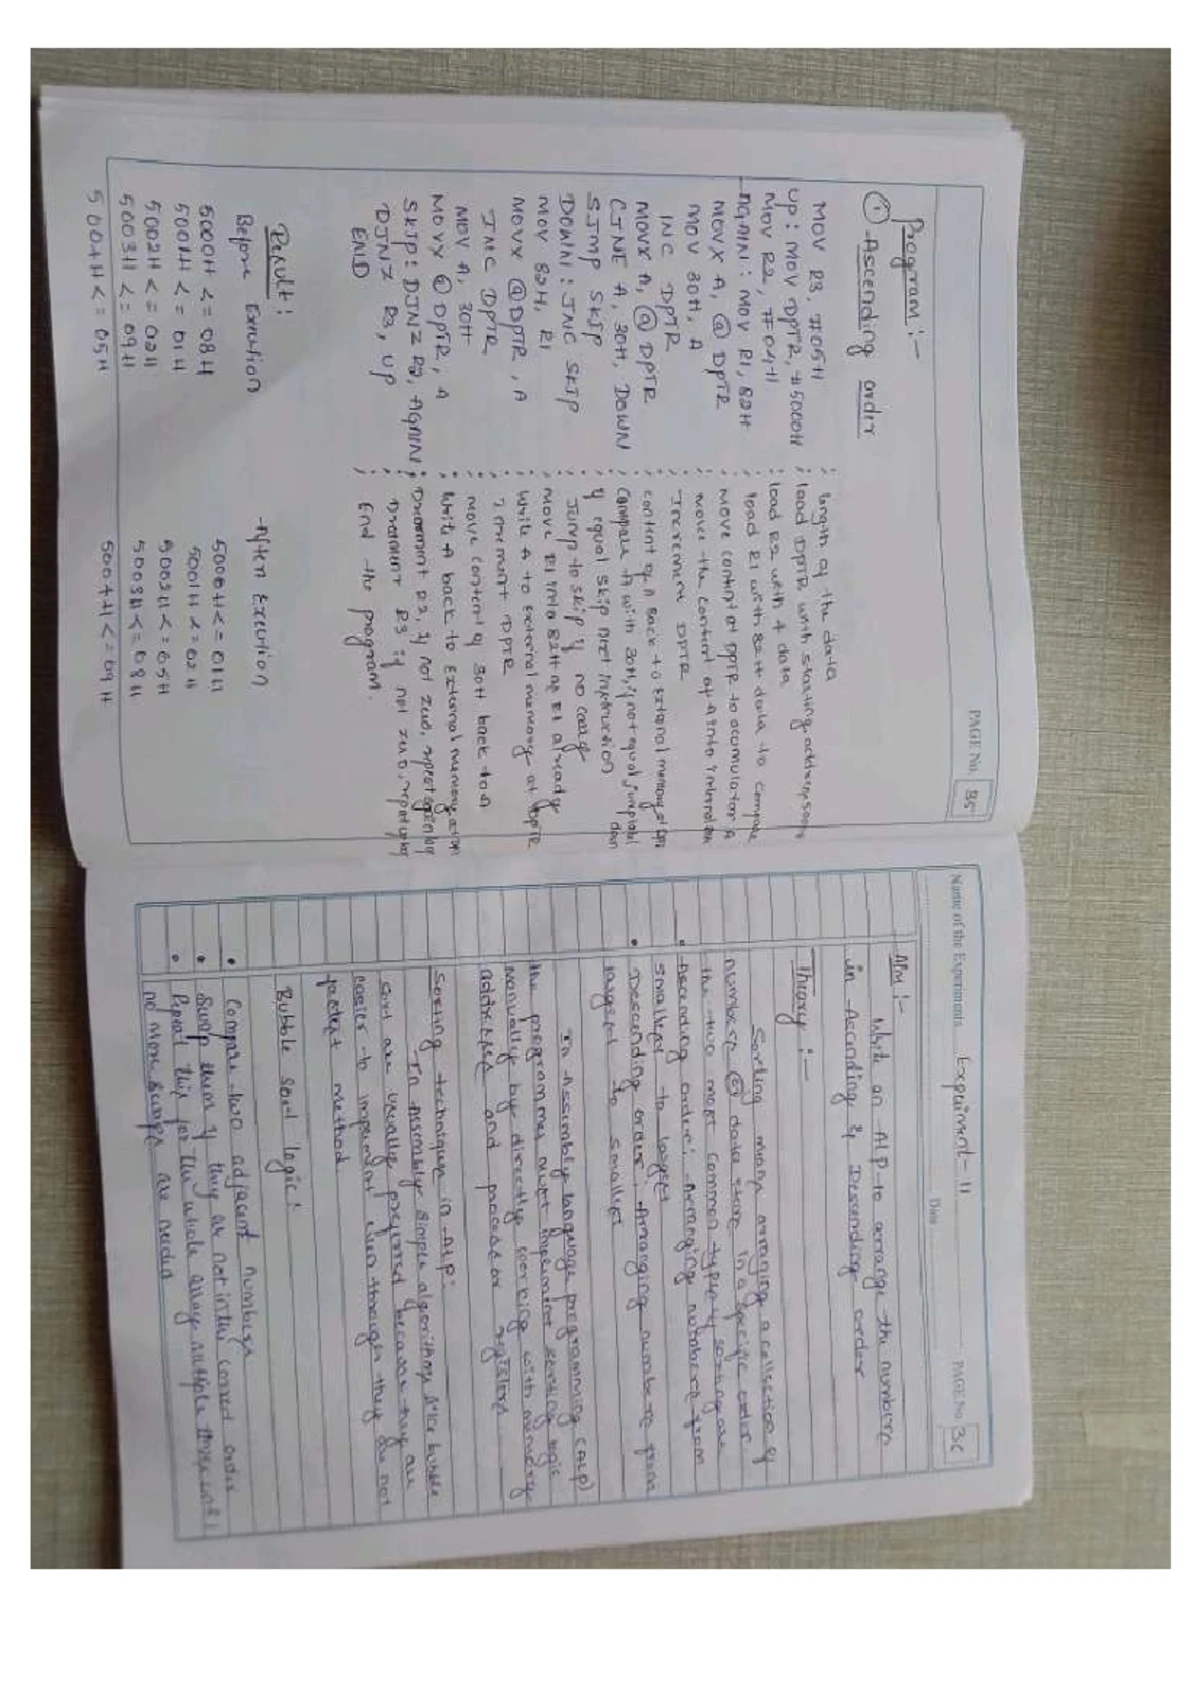 PAGE No. 35
Program :-
① Ascending order
MOV R3, #05H ; length of the data
UP: MOV DPTR, #5000H ; load DPTR with starting address 5000H
MOV R2, #04H ; load R2 with 4 data
AGAIN: MOV R1, 82H ; load R1 with 82H data to compare
MOVX A, @DPTR ; move content of DPTR to acumulator A
MOV 30H, A ; move the content of A into internal
INC DPTR ; Increment DPTR
MOVX A, @DPTR ; content of A back to external memory of
CJNE A, 30H, DOWN ; Compare A with 30H, if not equal jump
SJMP SKIP ; if equal skip next instruction
DOWN: JNC SKIP ; Jump to skip if no carry
MOV 82H, R1 ; move R1 into 82H as R1 already
MOVX @DPTR, A ; write A to external memory at DPTR
INC DPTR ; Increment DPTR
MOV A, 30H ; move content of 30H back to A
MOVX @DPTR, A ; write A back to external memory
SKIP: DJNZ R2, AGAIN ; Decrement R2, if not zero, repeat
DJNZ R3, UP ; Decrement R3 if not zero, repeat
END ; End the program.
Result:
Before Execution -After Execution
5000H <= 08H 5000H <= 01H
5001H <= 01H 5001H <= 02H
5002H <= 02H 5002H <= 05H
5003H <= 09H 5003H <= 08H
5004H <= 05H 5004H <= 09H
Name of the Experiments Expeiment-11 PAGE No. 36
Date
AIM :-
Write an ALP to arrange the numbers
in Ascending & Descending order
Theory :-
Sorting means arranging a collection of
numbers or data store in a specific order
the two most common types of sorting are
• Ascending order: Arranging numbers from
smallest to largest
• Descending order: Arranging numbers from
largest to smallest
In Assembly language programming (ALP)
the programmer must implement sorting logic
manually by directly working with memory
addresses and processor registers
Sorting techniques in ALP:
In Assembly simple algorithms like bubble
sort are usually preferred because they are
easier to impement even through they are not
fastest method
Bubble sort logic:
• Compare two adjacent numbers
• Swap them if they are not in the correct order
• Repeat this for the whole array multiple times until
no more swaps are needed